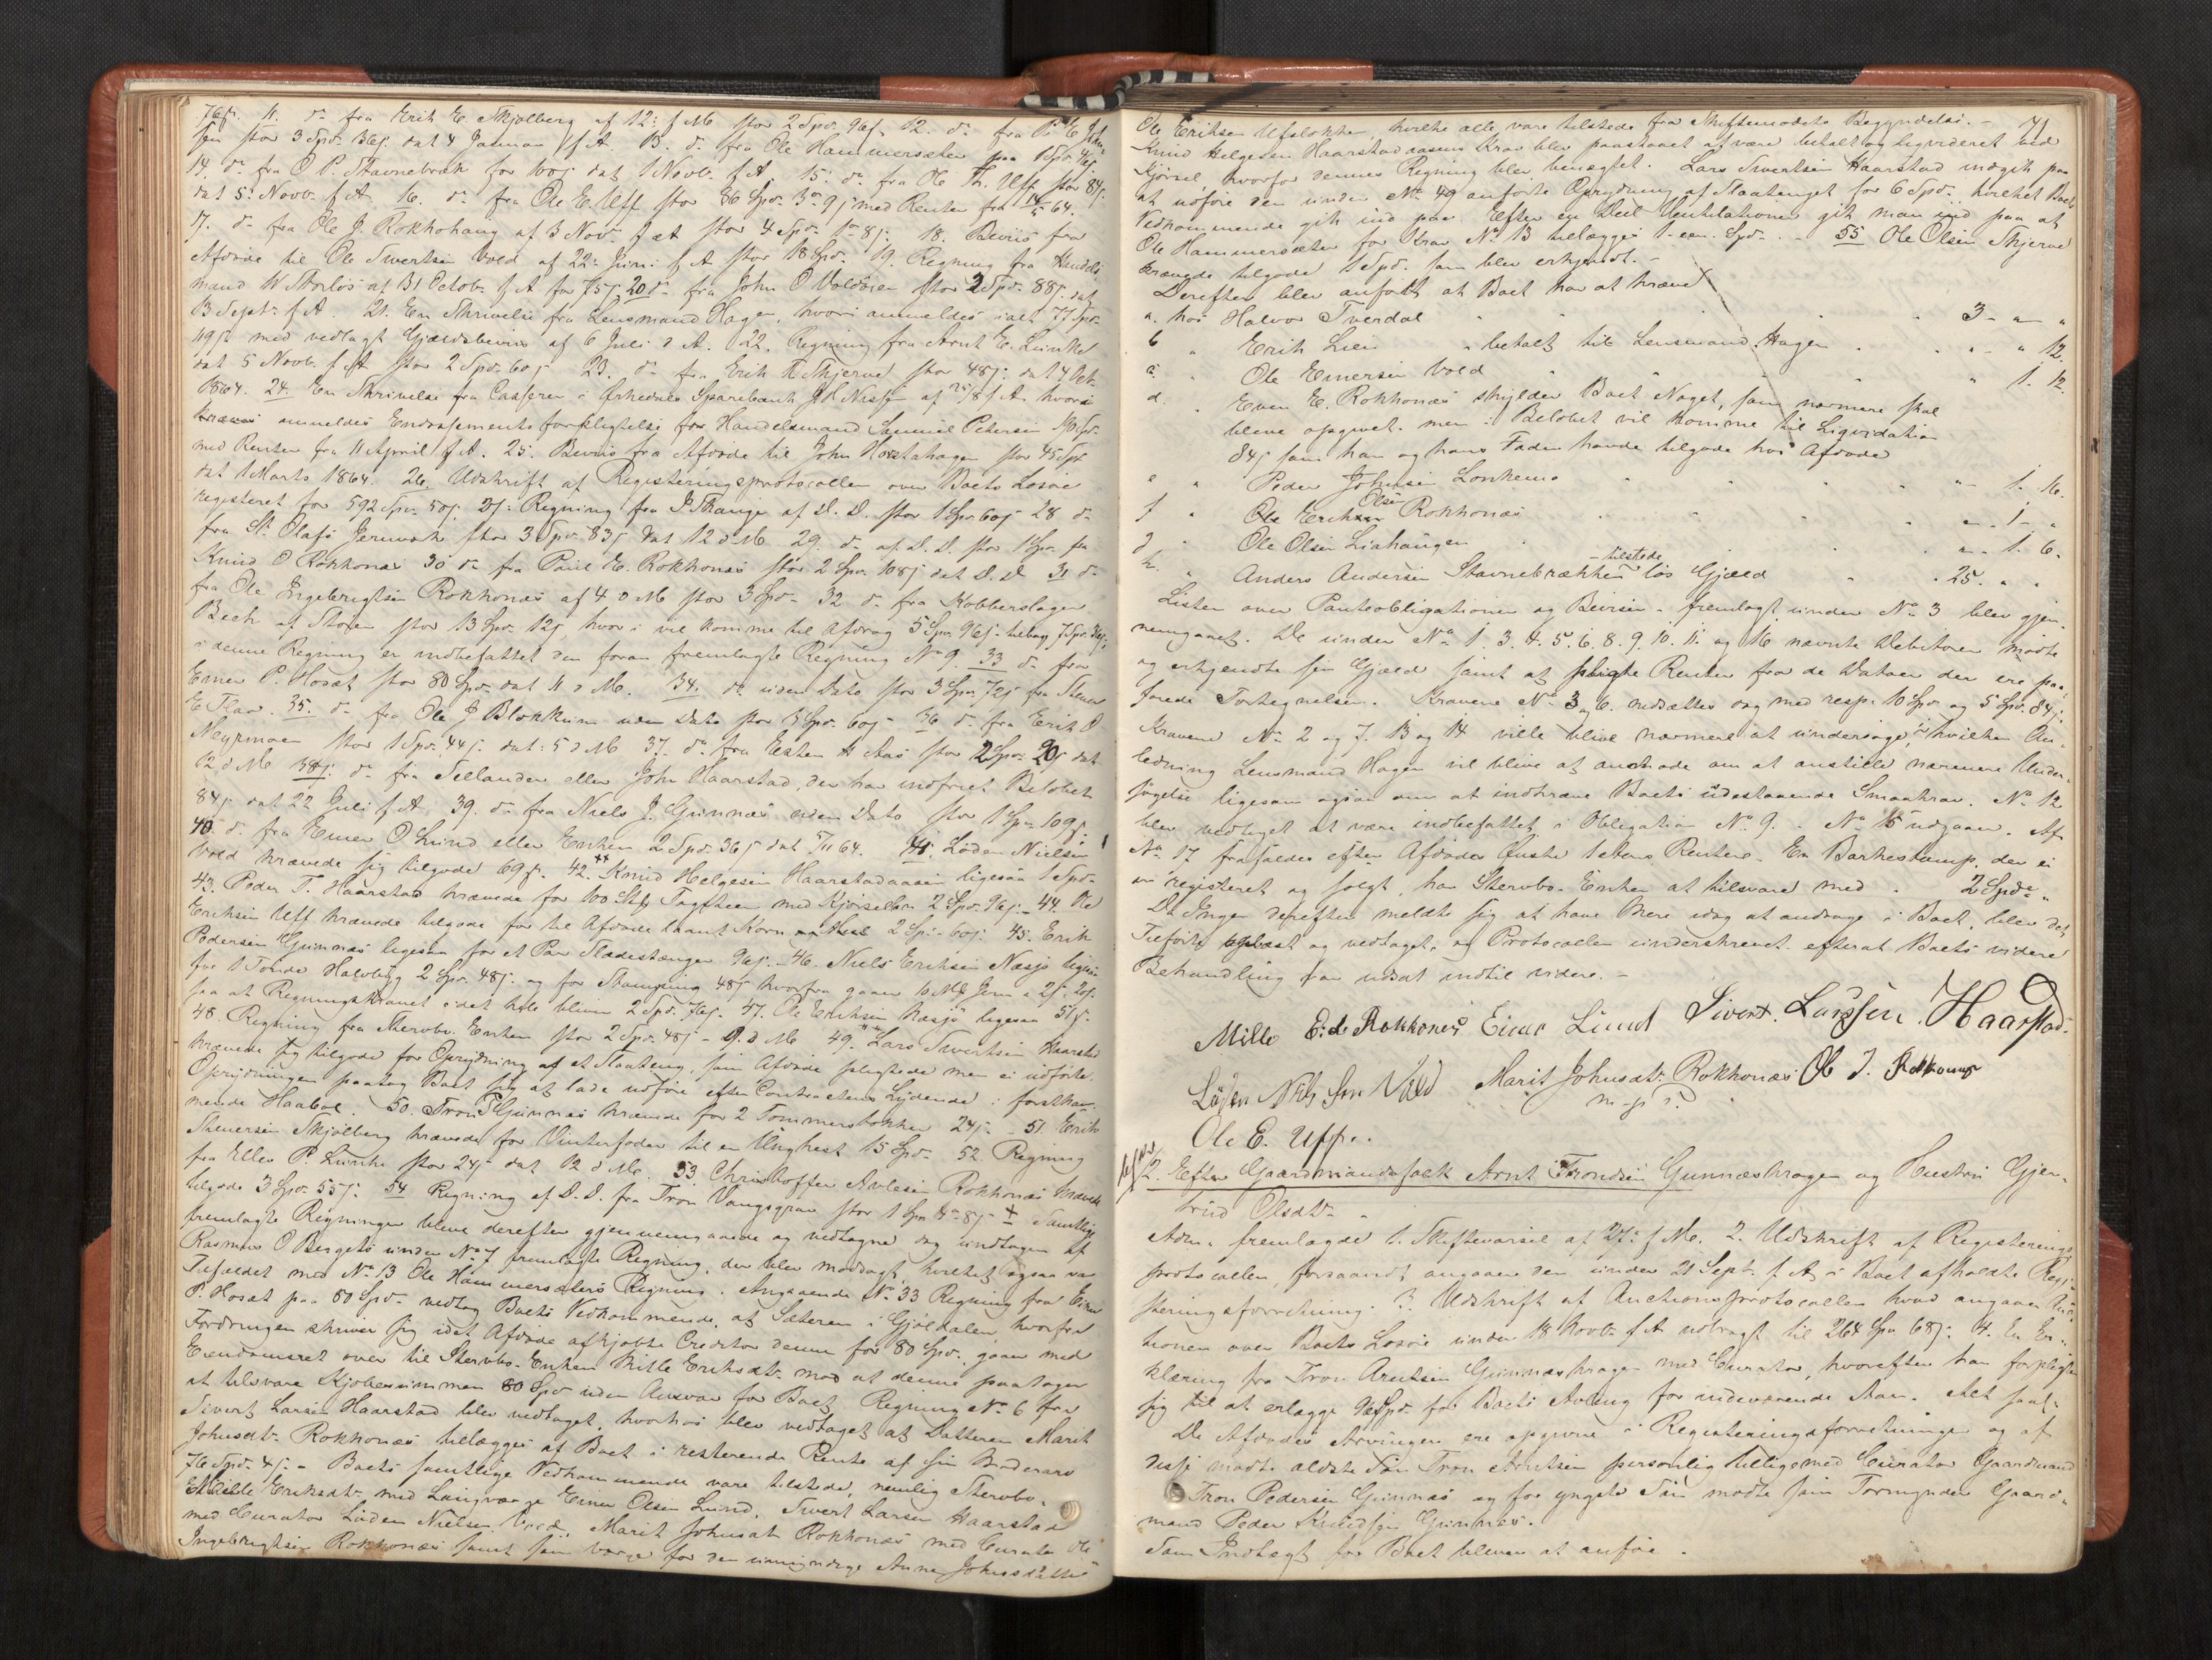 76ſ. 11. do fra Erik E. Skjølberg af 12: f M. stor 2 Spd. 96ſ. 12. do fra P. E. John-
sen stor 3 Spd. 36ſ. dat 4 Januar f. A. 13. do fra Ole Hammersæter paa 1 Spd.
14. do fra O P. Stavnebræk for 100ſ dat 1 Novb. f A. 15. do fra Ole Tr. Uff stor 84ſ.
dat 5: Novb. f A. 16. do fra Ole E. Uff stor 36 Spd. 9ſ med Renter fra
17. do fra Ole J. Rokkohaug af 3 Nov. stor 4 Spd. 18. Beviis fra
Afdøde til Ole Sivertsen Vold af 22: Juni f A stor 18 Spd. 19. Regning fra Handels-
mand W. af 31 Octob. f A for 75ſ 20. do fra John O Voldøien stor 2 Spd. 88ſ. dat
13 Septr. f A. 21. En Skrivelse fra Lensmand Hagen, hvori anmeldes ialt 77 Spd.
119ſ med vedlagt Gjældsbeviis af 6 Juli d A. 22. Regning fra Arnt E. Lunke
dat 5 Novb. f A stor 2 Spd. 60ſ 23. do fra Erik T. Skjerve stor 48ſ; dat 4 Oct.
1864. 24. En Skrivelse fra Casserer i Ørkedals Sparebank f A. hvori
anmeldes Endossements forpligtelse for Handelsmand Samuel Petersen
med Renter fra 11 April f A. 25. Beviis fra Afdøde til John Horstahagen stor 45 Spd
dat 1 Marts 1864. 26. Udskrift af Registeringsprotocollen over Boets Løsøre
registeret for 592 Spd. 50ſ. 27: Regning fra af D. D. stor 1 Spd. 60ſ 28 do
fra St. Olafs Jernværk stor 3 Spd. 83ſ dat 12 d M. 29. do af D. D. stor 1 Spd. fra
Knud O Rokkones 30 do fra Paul E. Rokkones stor 2 Spd. 108ſ dat D. D 31 do
fra Ole Ingebrigtsen Rokkones af 4 d M stor 3 Spd. 32 do fra Kobberslager
Bech af Støren stor 13 Spd. 12ſ, hvori vil komme til Afdrag 5 Spd. 96ſ. 7 Spd. 36ſ;
i denne Regning er indbefattet den foran fremlagte Regning No 9. 33 do fra
Einer P. Hosæt stor 80 Spd. dat 11 d M. 34. do uden Dato stor 3 Spd. 72ſ fra Stener
E Flaa. 35. do fra Ole J Blokkum uden Dato stor 3 Spd. 60ſ 36 do fra Erik O
Neyrmoen stor 1 Spd. 44ſ. dat: 5 d M 37. do fra Esten H Aas stor 2 Spd. 20ſ dat
12 d M 38. do fra Sellanden eller John Haarstad, der har indfriet Beløbet
84ſ dat 22 Juli f A. 39. do fra Niels J. Gunnes uden Dato stor 1 Spd. 109ſ.
40. do fra Einer O Lund eller Enken 2 Spd. 36ſ dat 64. 41. Løden Nielsen
Vold krævede sig tilgode 69ſ. 42. Knud Helgesen Haarstadaasen ligesaa 1 Spd.
43. Peder T. Haarstad krævede for 100 Stk Tagsteen med Kjørselen 2 Spd. 96ſ. 44. Ole
Eriksen Uff krævede tilgode for til Afdøde laant Korn 2 Spd. 60ſ. 45. Erik
Pedersen Gunnes ligesaa for et Par Slædestænger 96ſ. 46. Niels Eriksen Næsjø ligesaa
for 1 Tønde Halvbyg 2 Spd. 48ſ. og for Stampning 48ſ hvorfra gaaer
saa at Regningskravet i det hele bliver 2 Spd. 76ſ. 47. Ole Eriksen Næsjø ligesaa 51ſ.
48. Regning fra Stervbo-Enken stor 2 Spd. 48ſ - 9. d M. 49. Lars Sivertsen Haarstad
krævede sig tilgode for Oprydning af et Slaateng, som Afdøde pligtede men ei udførte.
Oprydningen paatog Boet sig at lade udføre efter Contractens Lydende i forstkom-
mende Haabol. 50. Tron P Gunnes krævede for 2 Tømmerstokker 24ſ. 51 Erik
Stenersen Skjølberg krævede for Vinterfoder til en Unghest 15 Spd. 52. Regning
fra Ellev P. Lunke stor 24ſ dat 12 d M. 53. Christoffer Arntsen Rokkones krævede
tilgode 3 Spd. 55ſ. 54 Regning af D. D. fra Tron Vangsgrav stor 1 Spd. Samtlige
fremlagte Regninger bleve derefter gjennemgaaede og vedtagne dog undtagen af
Rasmus O Bergets under No 7 fremlagte Regning, der blev modsagt, hvilket ogsaa var
Tilfældet med No 13 Ole Hammersæters Regning. Angaaende No 33 Regning fra Einer
P. Hosæt paa 80 Spd. vedtog Boets Vedkommende, at Sæteren i Gjøldalen, hvorfra
Fordringen skriver sig idet Afdøde afkjøbte Creditor denne for 80 Spd., gaar med
Eiendomsret over til Stervbo-Enken Mille Eriksdt. mod at denne paatager
at tilsvare Kjøbesummen 80 Spd uden Ansvar for Boet. Regning No 6 fra
Sivert Larsen Haarstad blev vedtaget, hvorhos blev vedtaget at Datteren Marit
Johnsdt. Rokkones tillægges af Boet i resterende Rente af sin Moderarv
76 Spd. 4ſ. - Boets samtlige Vedkommende vare tilstede, nemlig Stervbo-
Mille Eriksdt. med Laugværge Einer Olsen Lund, Sivert Larsen Haarstad
med Curator Løden Nielsen Vold, Marit Johnsdt. Rokkones med Curator Ole
Ingebrigtsen Rokkones samt som Værge for den umyndige Anne Johnsdatter
41
Ole Eriksen Ufsløkken, hvilke alle vare tilstede fra Skiftemødets Begyndelse. -
Knud Helgesen Haarstadaasens Krav blev paastaaet at være betalt og liqvideret ved
Kjørsel, hvorfor dennes Regning blev benægtet. Lars Sivertsen Haarstad indgik paa
at udføre den under No 49 anførte Oprydning af Slaatenget for 6 Spd. hvilket Boets
Vedkommende gik ind paa. Efter en Deel Ventilationer gik man ind paa at
Ole Hammersæter for Krav No 13 tillægges 1 een Spd. - 55 Ole Olsen Skjerve
krævede tilgode 1 Spd. som blev erkjendt. -
Derefter blev anført at Boet har at kræve
a. hos Halvor Sverdal 3 - " - "
b " Erik Lien - betalt til Lensmand Hagen " - " 12.
c. " Ole Einersen Vold " 1. 12
d. " Even E. Rokkones skylder Boet Noget, som nærmere skal
blive opgivet. men i Beløbet vil komme til Liqvidation
84ſ som han og hans Fader havde tilgode hos Afdøde
e " Peder Johnsen Lonkemo " - 1. 16.
f " Ole Olsen Rokkones " - 1 - "
g " Ole Olsen Liahaugen " - 1. 6.
h. " Anders Andersen Stavnebrækken - tilstede løs Gjæld 25. " "
Listen over Panteobligationer og Beviser - fremlagt under No 3 blev gjen-
nemgaaet. De under No 1. 3. 4. 5. 6. 8. 9. 10. 11. og 16 nævnte Debitorer mødte
og erkjendte sin Gjæld samt at pligte Renter fra de Datoer der ere paa-
førede Fortegnelsen. Kravene No 3 og 6. nedsættes dog med resp. 10 Spd. og 5 Spd. 84ſ.
Kravene No 2 og 7. 13 og 14 ville blive nærmere at undersøge, i hvilken An-
ledning Lensmand Hagen vil blive at anmode om at anstille nærmere Under-
søgelse ligesom ogsaa om at indkræve Boets udestaaende Smaakrav. No 12
blev vedtaget at være indbefattet i Obligation No 9. - No 15 udgaaer. Af
No 17 frafaldes efter Afdødes Ønske 1 Aars Rentere. En Barkestamp, der ei
er registeret og solgt, har Stervbo-Enken at tilsvare med 2 Spd. "
Da Ingen derefter meldte sig at have Mere idag at andrage i Boet, blev det
Tilførte oplæst og vedtaget, og Protocollen underskrevet efterat Boets videre
Behandling var udsat indtil videre. -
Mille E:d: Rokkones Einar Lund Sivert. Larssen. Haarstad.
Løden Nils Søn Vold Marit Johnsdt. Rokkones Ole I. Rokkones
m. p. P.
Ole E. Uff..
2. Efter Gaardmandsfolk Arnt Trondsen Gunneskragen og Hustru Gjer-
trud Olsdt.
Adm. fremlagde 1. Skiftevarsel af 27: f M. 2. Udskrift af Registerings-
protocollen, forsaavidt angaaer den under 21 Sept. f. A. i Boet afholdte Regi-
steringsforretning. 3. Udskrift af Auctionsprotocollen hvad angaaer Auc-
tionen over Boets Løsøre under 18 Novb. f A udbragt til 264 Spd 68ſ. 4. En Er-
klæring fra Tron Arntsen Gunneskragen med Curator, hvorefter han forpligter
sig til at erlægge Spd. for Boets Avling for indeværende Aar. Alt saal.
De Afdødes Arvinger ere opgivne i Registeringsforretningen og af
disse mødte ældste Søn Tron Arntsen personlig tilligemed Curator Gaardmand
Tron Pedersen Gunnes og for yngste Søn mødte som Formynder Gaard-
mand Peder Knudsen Gunnes.
Som Indtægt for Boet bliver at anføre.